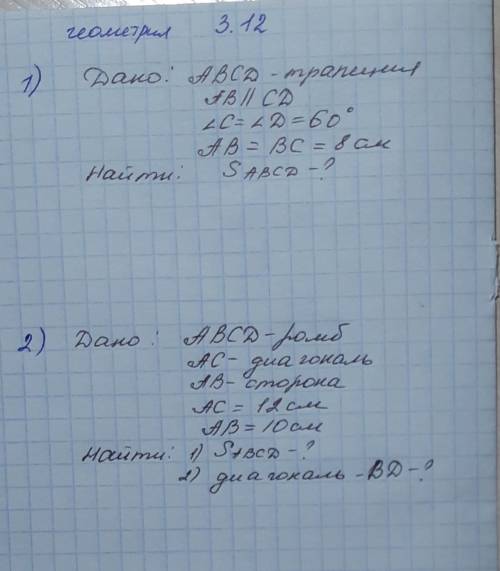 геометрия 3.12
1) Дано: ABCD - трапеция
AB || CD
∠C = ∠D = 60°
AB = BC = 8 см
Найти: S ABCD - ?
2) Дано: ABCD - ромб
AC - диагональ
AB - сторона
AC = 12 см
AB = 10 см
Найти: 1) S ABCD - ?
2) диагональ - BD - ?